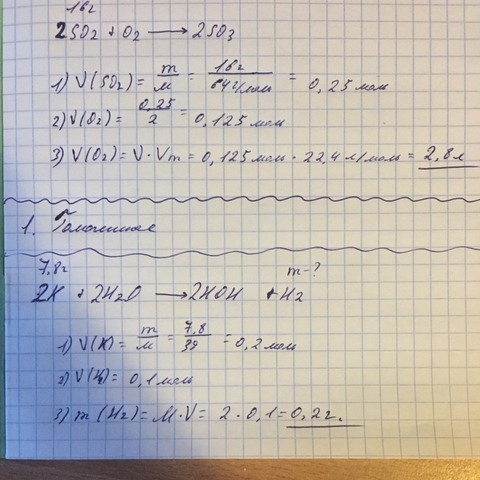 16г
2SO2 + O2 → 2SO3
1) V(SO2) = m/M = 16г/64г/моль = 0,25 моль
2) V(O2) = 0,25/2 = 0,125 моль
3) V(O2) = V · Vm = 0,125 моль · 22,4 л/моль = 2,8 л
1.
7,8г m-?
2K + 2H2O → 2KOH + H2
1) V(K) = m/M = 7,8/39 = 0,2 моль
2) V(H2) = 0,1 моль
3) m(H2) = M · V = 2 · 0,1 = 0,2г.